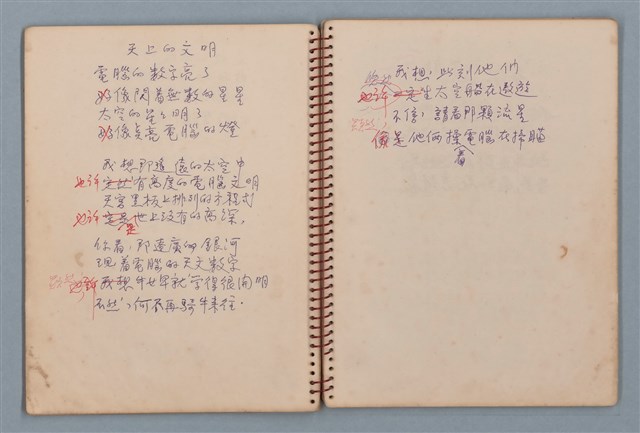 天上的文明
電腦的數字亮了
好像閃着無數的星星
太空的星星明了
好像點亮電腦的燈
我想那遙遠的太空中
也許 定然有高度的電腦文明
天宮黑板上排列的方程式
也許 定是世上沒有的高深,
你看,那遼廣的銀河
現着電腦的天文數字
我想牛女早就學得很開明
不然,何不再騎牛來往.
我想,此刻他們
也許 定坐太空船在遨遊
不信,請看那顆流星
像是他倆操電腦在掃瞄